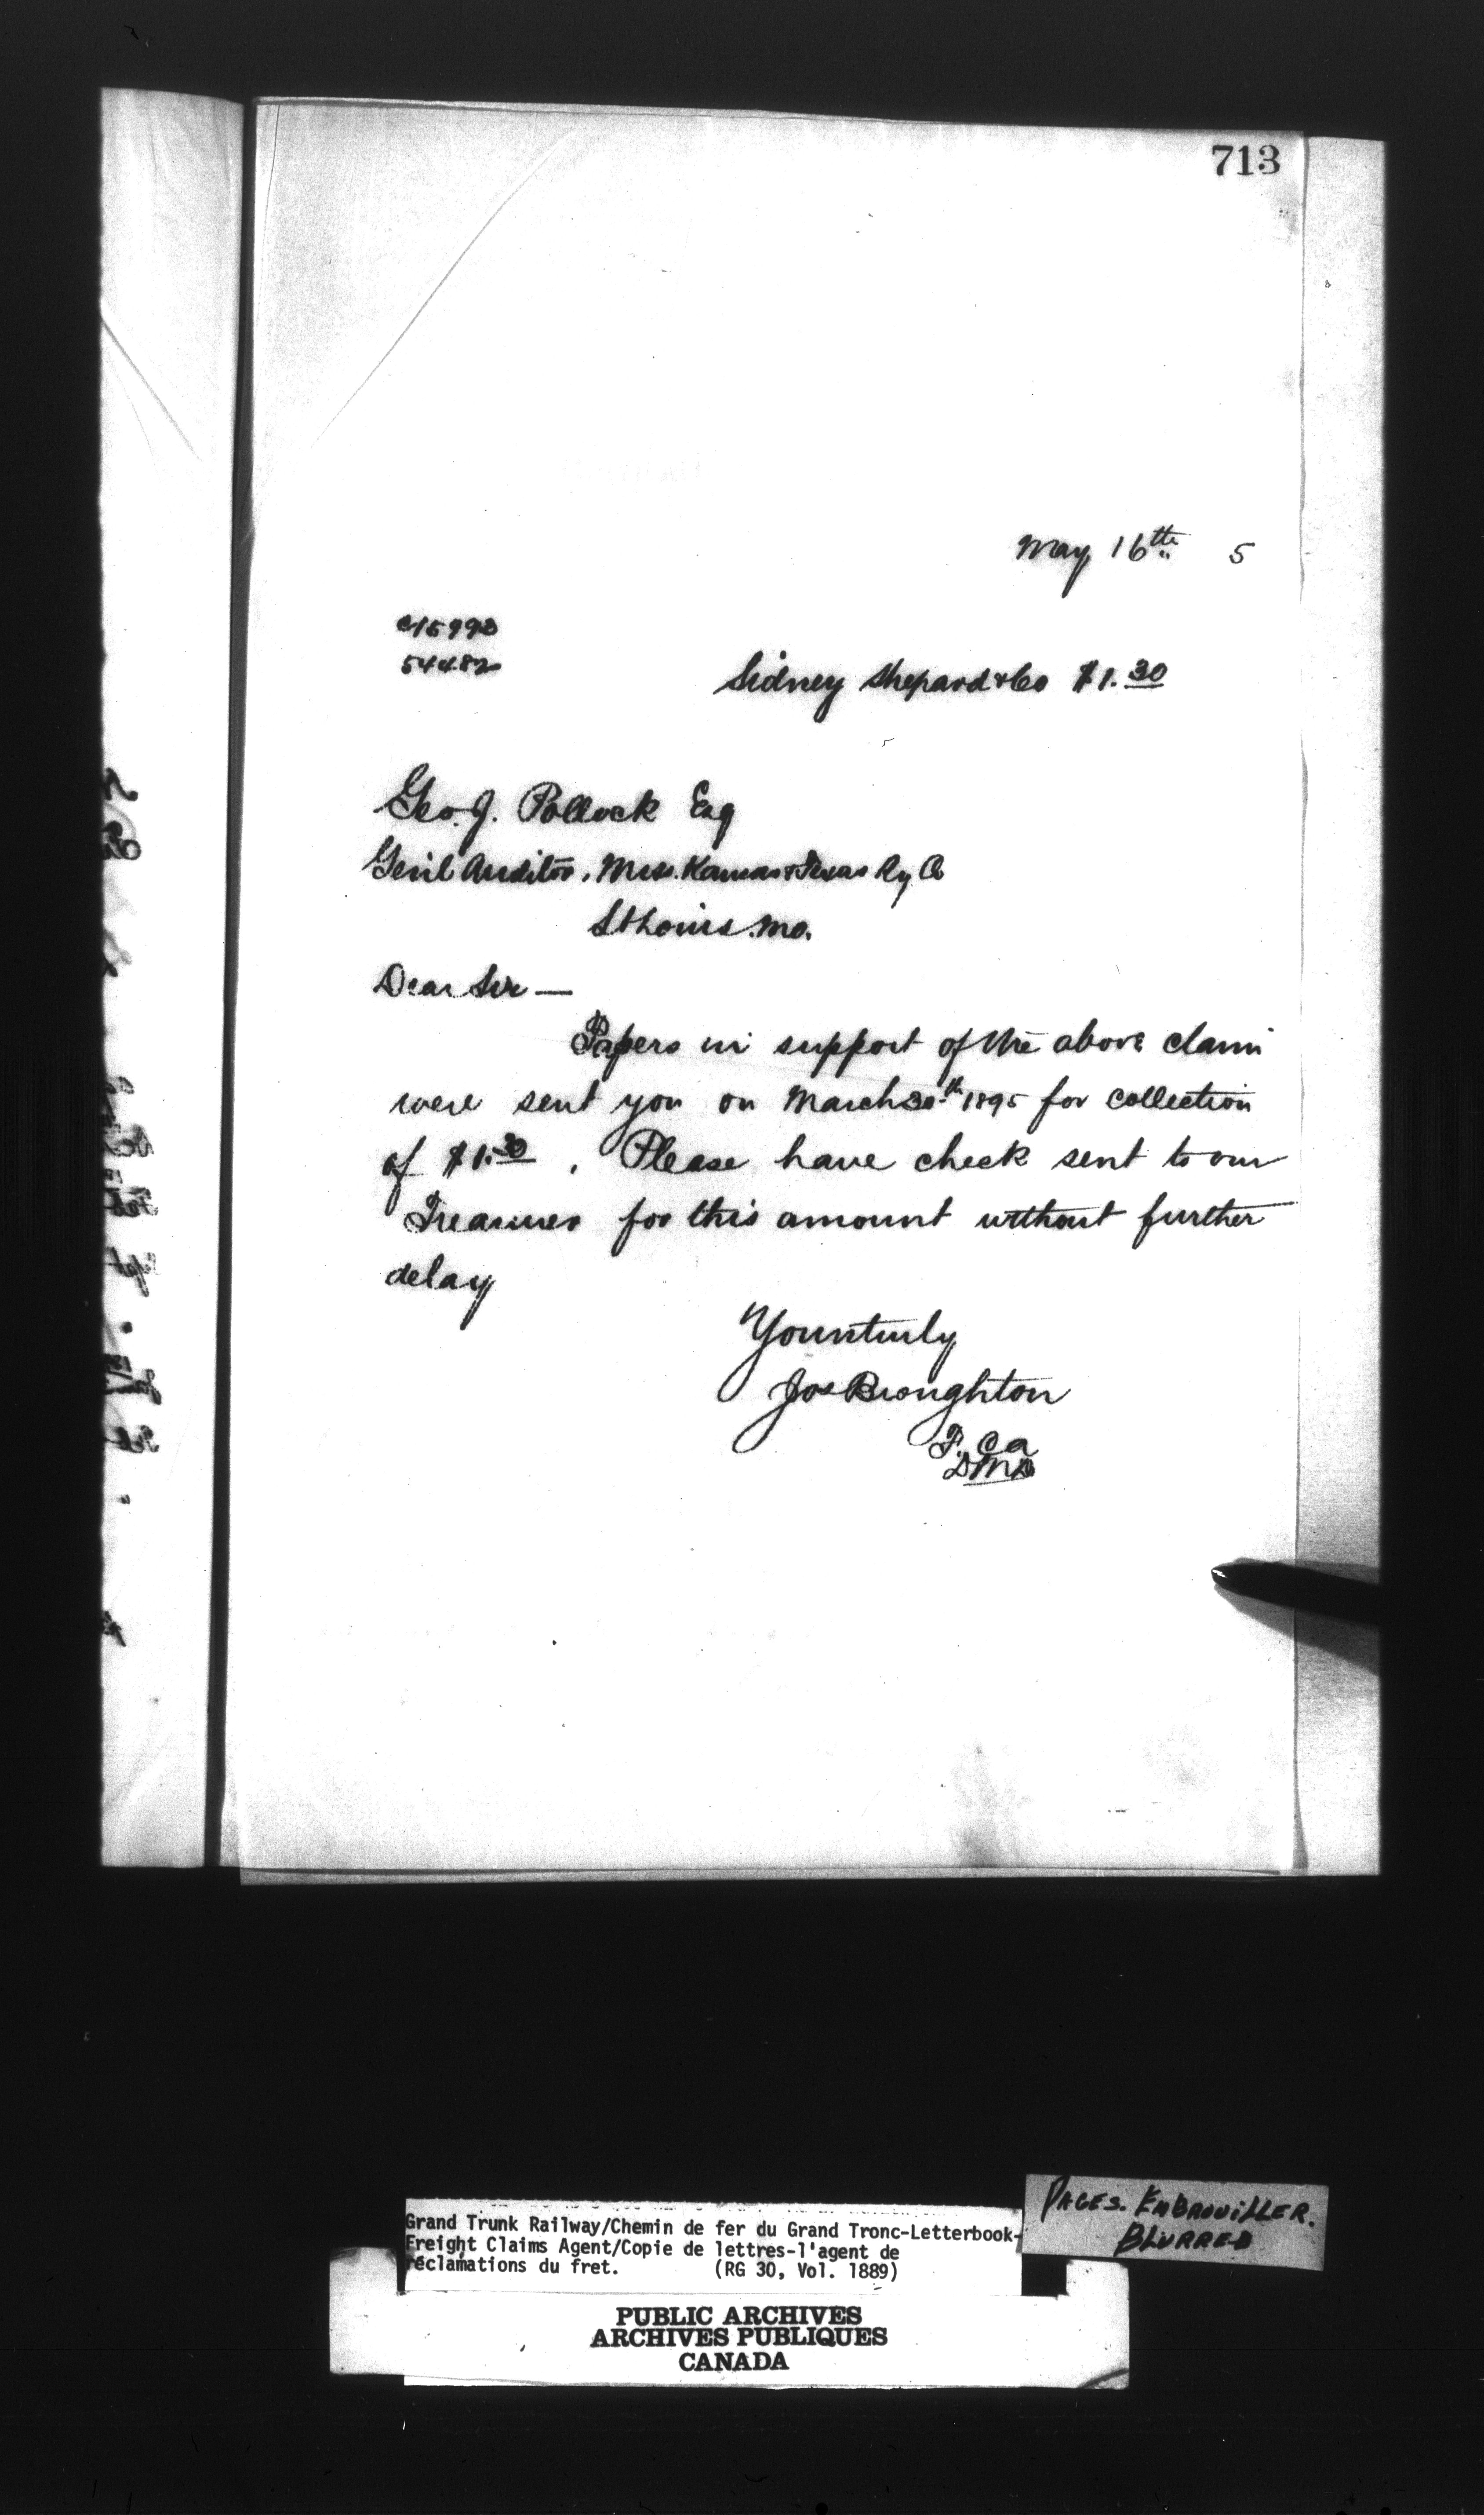 713
May 16th 5
C15993
54482
Sidney Shepard & Co $1.30
Geo. J. Pollock Esq
Gen'l Auditor, Miss. Kansas & Texas Ry Co
St Louis. Mo.
Dear Sir —
Papers in support of the above claim
were sent you on March 30th 1895 for collection
of $1.30. Please have check sent to our
Treasurer for this amount without further
delay
Yours truly
Jos Broughton
F.C.A
DMD
PAGES. EMBROUILLER.
BLURRED
Grand Trunk Railway/Chemin de fer du Grand Tronc-Letterbook-
Freight Claims Agent/Copie de lettres-l'agent de
réclamations du fret. (RG 30, Vol. 1889)
PUBLIC ARCHIVES
ARCHIVES PUBLIQUES
CANADA